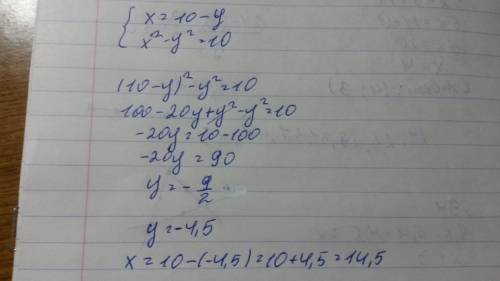 { x = 10 - y
x² - y² = 10
(10 - y)² - y² = 10
100 - 20y + y² - y² = 10
-20y = 10 - 100
-20y = 90
y = - 9/2
y = -4,5
x = 10 - (-4,5) = 10 + 4,5 = 14,5